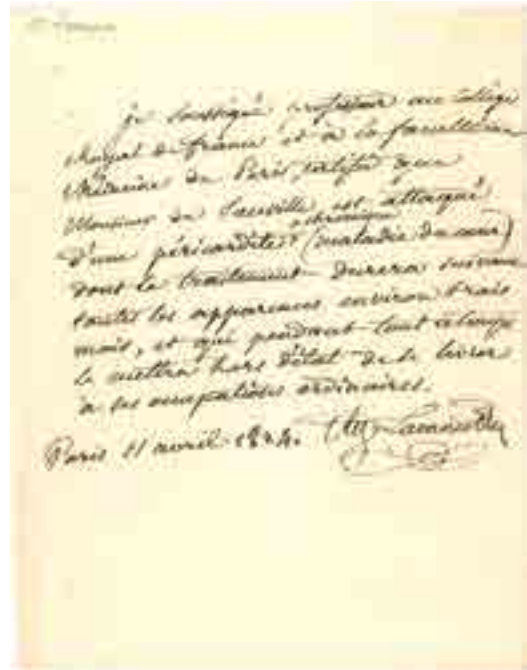 je soussigné professeur au Collège
Royal de france et à la faculté de
Médecine de Paris, certifie que
Monsieur de est attaqué
d'une péricardite chronique (maladie du cœur)
dont le traitement durera suivant
toutes les apparences environ trois
mois, et qui pendant tout ce temps
le mettra hors d'état de se livrer
à ses occupations ordinaires.
Paris 11 avril 1824.